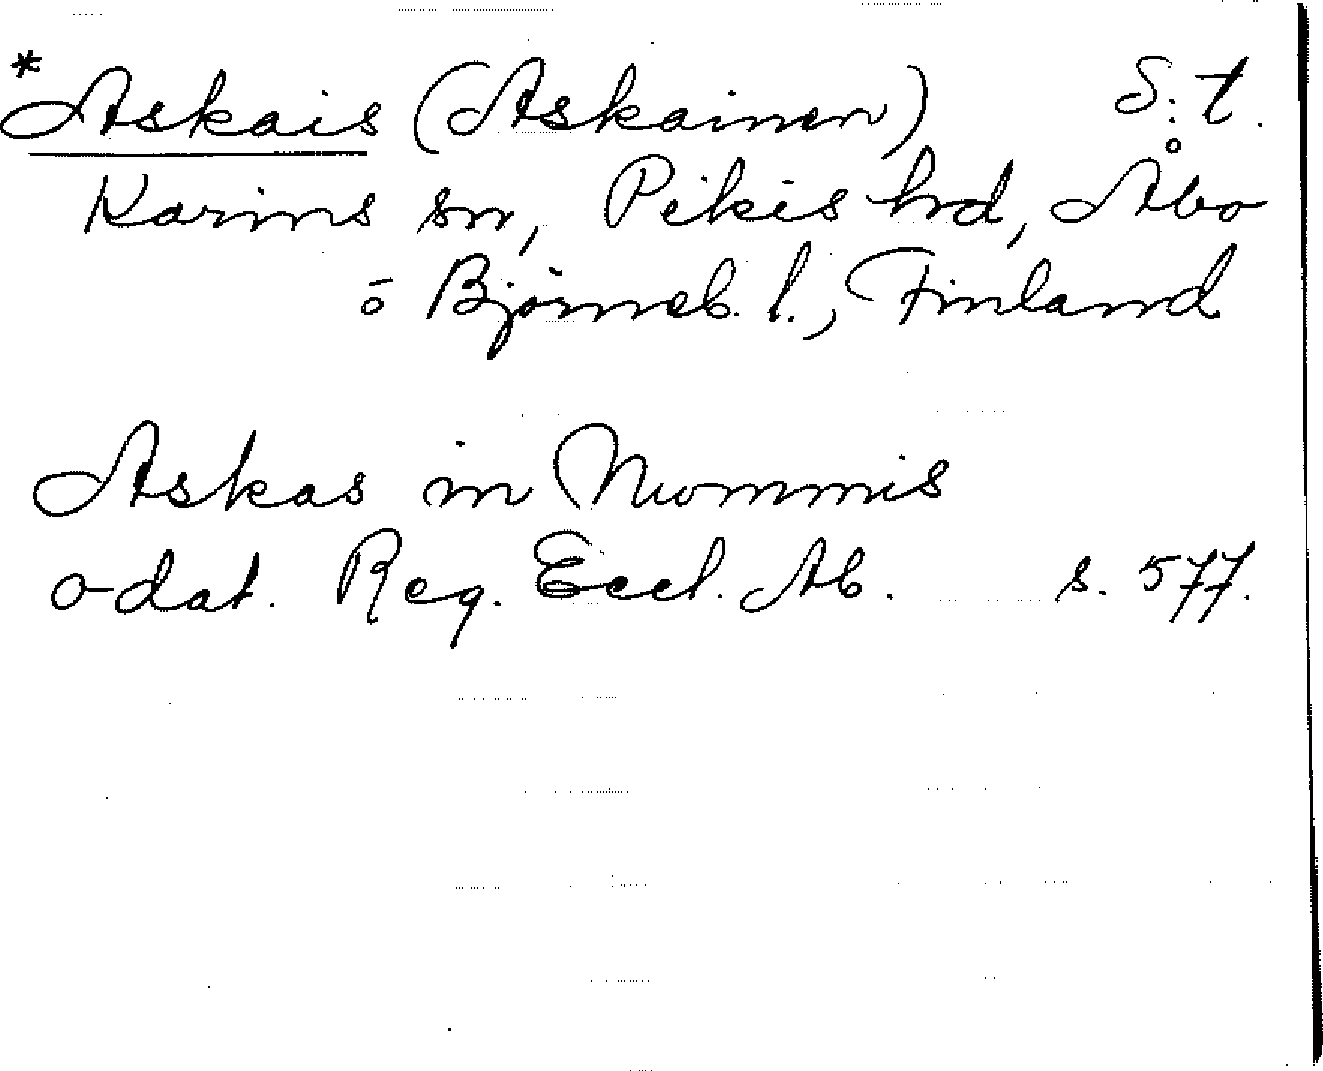 *Askais (Askainen) S:t
Karins sn, Pikis hrd, Åbo
o Björneb. l., Finland
Askas in Nummis
odat. Reg. Eccl. Ab. s. 577.